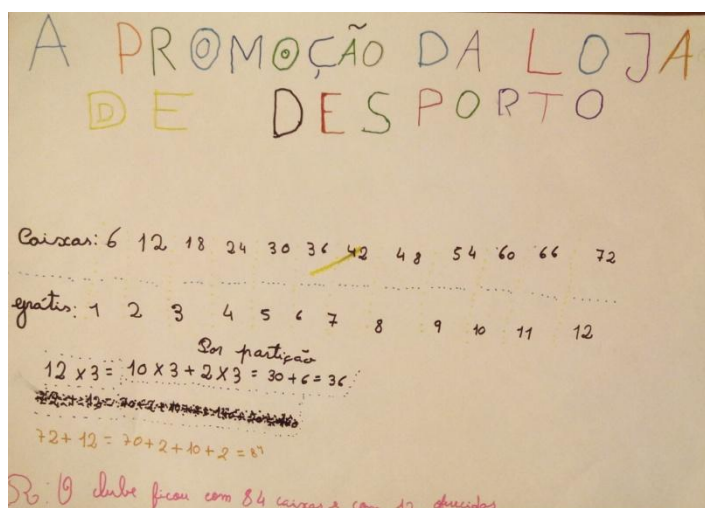 A PROMOÇÃO DA LOJA
DE DESPORTO
Caixas: 6 12 18 24 30 36 42 48 54 60 66 72
grátis: 1 2 3 4 5 6 7 8 9 10 11 12
Por partição
12 x 3 = 10 x 3 + 2 x 3 = 30 + 6 = 36
72 + 12 = 70 + 2 + 10 + 2 =
R: O clube ficou com 84 caixas com 12